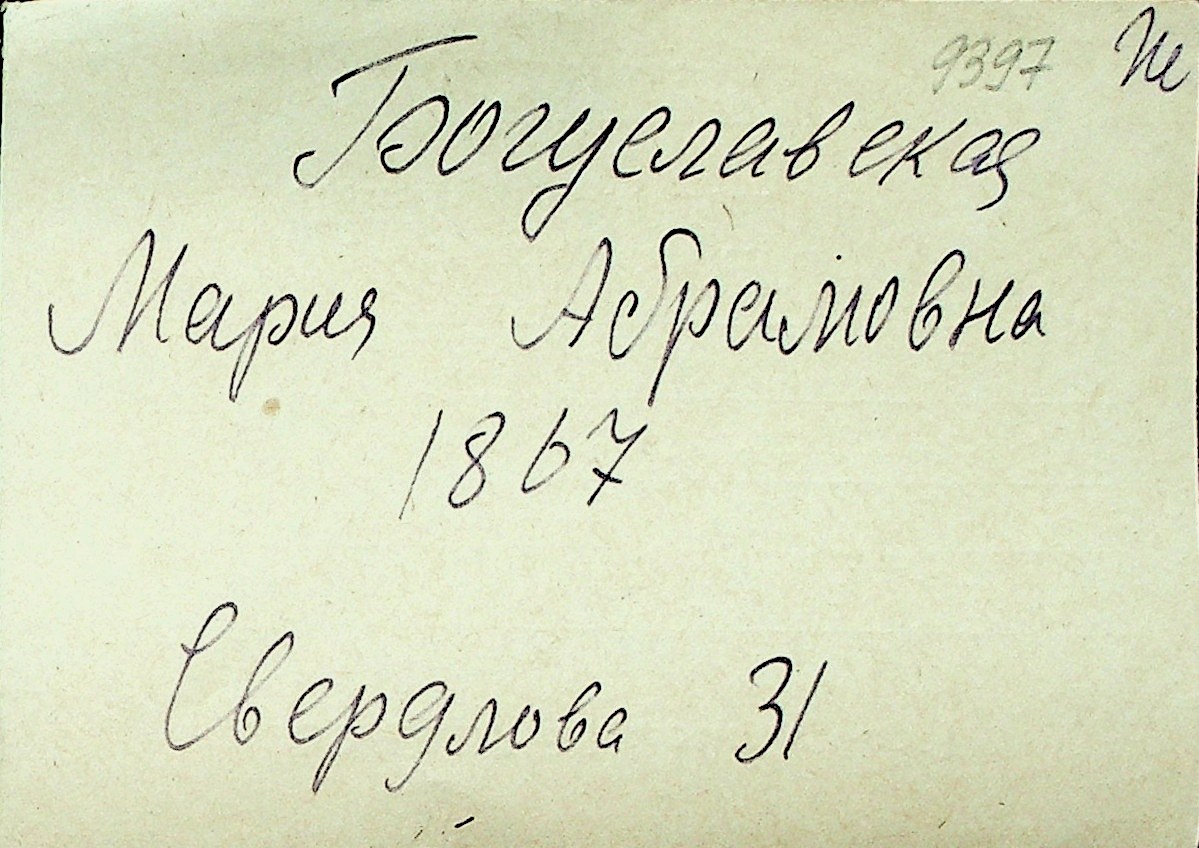 9397
Богуславская
Мария Абрамовна
1867
Свердлова 31